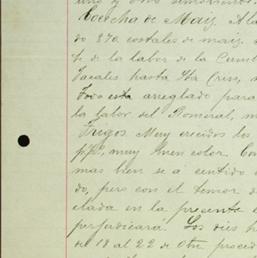 uno y otro
Cosecha de Maiz. A la
do 270 costales de maiz,
ti de la labor de la Cumb
Jacales hasta Sta Cruz,
Foo esta arreglado para
la labor del Romeral, m
Trigos. Muy crecidos los
ppo, muy buen color. Con
mas bien se a sentido
do, pero con el temor d
elada en la presente
perjudicará. Los dias h
de 18 al 22 de Obre proced